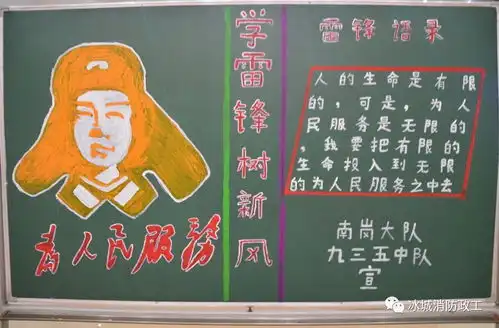 为人民服务
学雷锋树新风
雷锋语录
人的生命是有限
的，可是，为人
民服务是无限的
，我要把有限的
生命投入到无限
的为人民服务之中去
南岗大队
九三五中队
宣
冰城消防政工